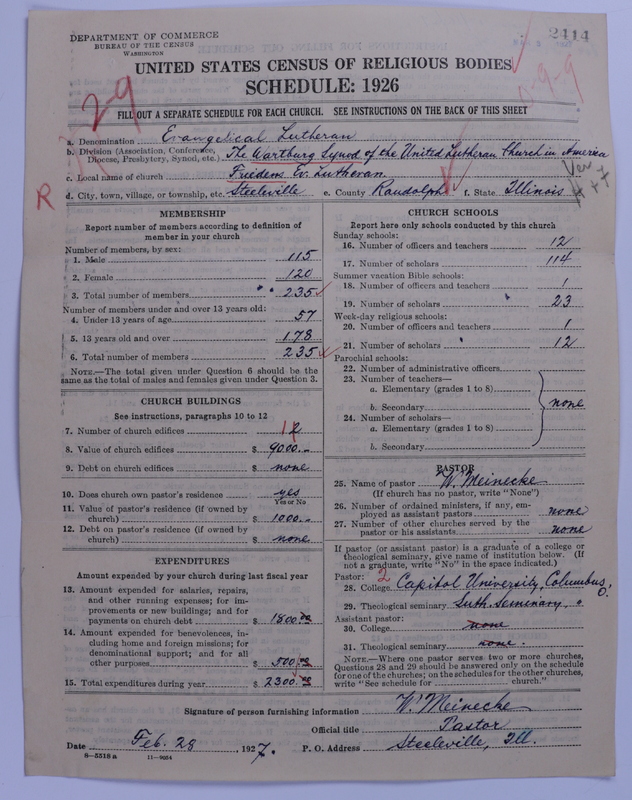 2414
DEPARTMENT OF COMMERCE
BUREAU OF THE CENSUS
WASHINGTON
UNITED STATES CENSUS OF RELIGIOUS BODIES
SCHEDULE: 1926
2-9
9-9
FILL OUT A SEPARATE SCHEDULE FOR EACH CHURCH. SEE INSTRUCTIONS ON THE BACK OF THIS SHEET
a. Denomination Evangelical Lutheran
b. Division (Association, Conference, Diocese, Presbytery, Synod, etc.) The Wartburg Synod of the United Lutheran Church in America
c. Local name of church Friedens Ev. Lutheran
R
d. City, town, village, or township, etc. Steeleville e. County Randolph f. State Illinois
MEMBERSHIP
Report number of members according to definition of
member in your church
Number of members, by sex:
1. Male 115
2. Female 120
3. Total number of members 235
Number of members under and over 13 years old:
4. Under 13 years of age 57
5. 13 years old and over 178
6. Total number of members 235
NOTE.—The total given under Question 6 should be the
same as the total of males and females given under Question 3.
CHURCH BUILDINGS
See instructions, paragraphs 10 to 12
7. Number of church edifices 1 2
8. Value of church edifices $ 9000.-
9. Debt on church edifices $ none
10. Does church own pastor's residence yes
Yes or No
11. Value of pastor's residence (if owned by
church) $ 1000.-
12. Debt on pastor's residence (if owned by
church) $ none
EXPENDITURES
Amount expended by your church during last fiscal year
13. Amount expended for salaries, repairs,
and other running expenses; for im-
provements or new buildings; and for
payments on church debt $ 1800.00
14. Amount expended for benevolences, in-
cluding home and foreign missions; for
denominational support; and for all
other purposes $ 500.00
15. Total expenditures during year $ 2300.00
CHURCH SCHOOLS
Report here only schools conducted by this church
Sunday schools:
16. Number of officers and teachers 12
17. Number of scholars 114
Summer vacation Bible schools:
18. Number of officers and teachers 1
19. Number of scholars 23
Week-day religious schools:
20. Number of officers and teachers 1
21. Number of scholars 12
Parochial schools:
22. Number of administrative officers
23. Number of teachers—
a. Elementary (grades 1 to 8)
b. Secondary none
24. Number of scholars—
a. Elementary (grades 1 to 8)
b. Secondary
PASTOR
25. Name of pastor W. Meinecke
(If church has no pastor, write "None")
26. Number of ordained ministers, if any, em-
ployed as assistant pastors none
27. Number of other churches served by the
pastor or his assistants none
If pastor (or assistant pastor) is a graduate of a college or
theological seminary, give name of institution below. (If
not a graduate, write "No" in the space indicated.)
Pastor: 2
28. College Capitol University, Columbus, O.
29. Theological seminary Luth. Seminary, "
Assistant pastor:
30. College none
31. Theological seminary none.
NOTE.—Where one pastor serves two or more churches,
Questions 28 and 29 should be answered only on the schedule
for one of the churches; on the schedules for the other churches,
write "See schedule for church."
Signature of person furnishing information W. Meinecke
Official title Pastor
Date Feb. 28, 1927. P. O. Address Steeleville, Ill.
8-5518 a 11-9054